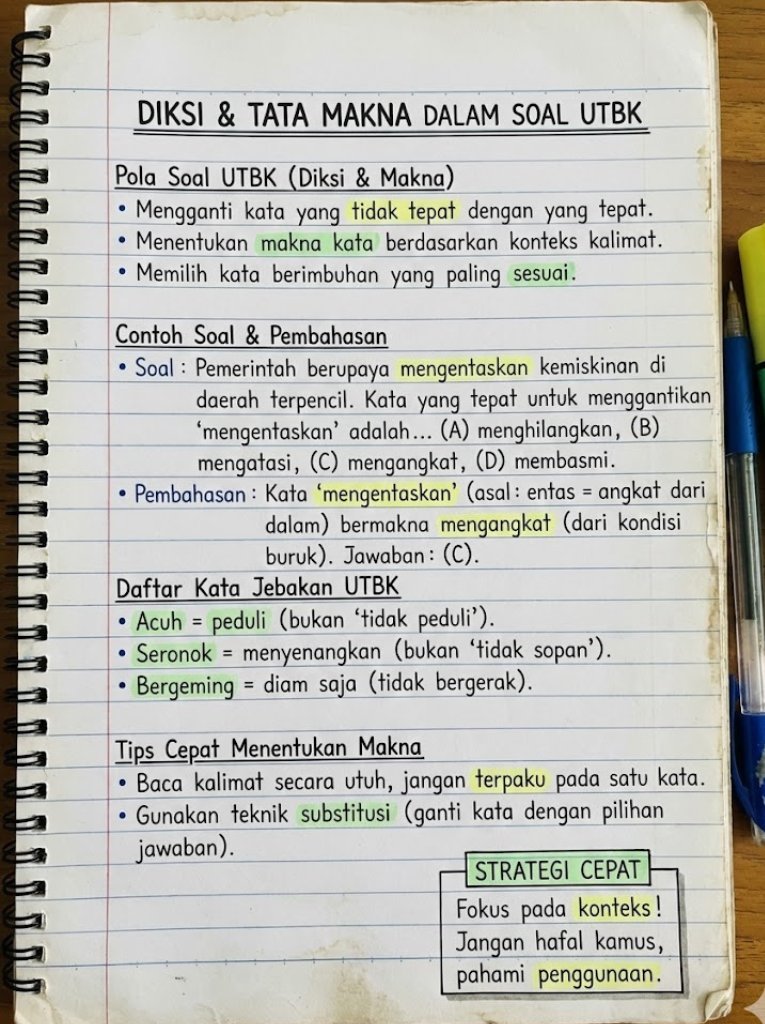 DIKSI & TATA MAKNA DALAM SOAL UTBK
Pola Soal UTBK (Diksi & Makna)
• Mengganti kata yang tidak tepat dengan yang tepat.
• Menentukan makna kata berdasarkan konteks kalimat.
• Memilih kata berimbuhan yang paling sesuai.
Contoh Soal & Pembahasan
• Soal : Pemerintah berupaya mengentaskan kemiskinan di
daerah terpencil. Kata yang tepat untuk menggantikan
‘mengentaskan’ adalah... (A) menghilangkan, (B)
mengatasi, (C) mengangkat, (D) membasmi.
• Pembahasan : Kata ‘mengentaskan’ (asal : entas = angkat dari
dalam) bermakna mengangkat (dari kondisi
buruk). Jawaban : (C).
Daftar Kata Jebakan UTBK
• Acuh = peduli (bukan ‘tidak peduli’).
• Seronok = menyenangkan (bukan ‘tidak sopan’).
• Bergeming = diam saja (tidak bergerak).
Tips Cepat Menentukan Makna
• Baca kalimat secara utuh, jangan terpaku pada satu kata.
• Gunakan teknik substitusi (ganti kata dengan pilihan
jawaban).
STRATEGI CEPAT
Fokus pada konteks!
Jangan hafal kamus,
pahami penggunaan.